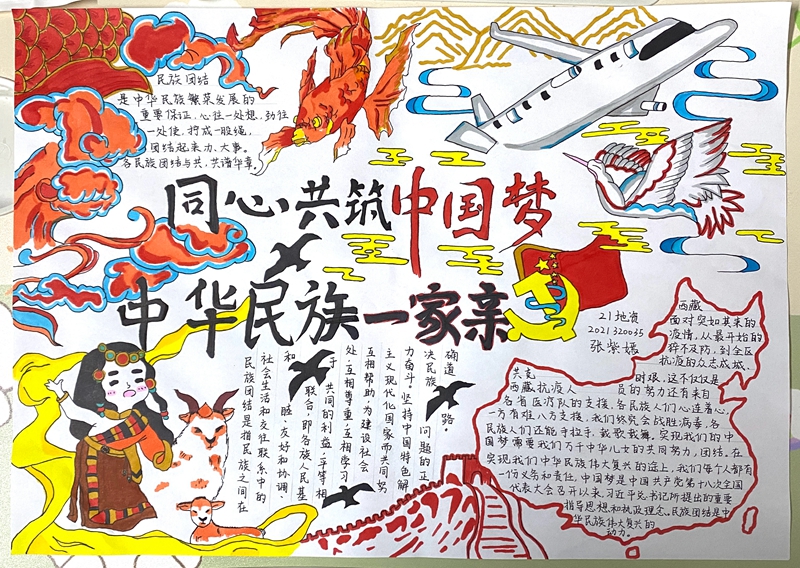 民族团结
是中华民族繁荣发展的
重要保证,心往一处想,劲往
一处使,拧成一股绳,
团结起来力、大事。
各民族团结与共,共谱华章。
同心共筑中国梦
中华民族一家亲
21地资
2021320035
张紫嫣
民族团结是指民族之间在
社会生活和交往联系中的
和睦、友好和协调、
联合,即各族人民基
于共同的利益,平等相
处,互相尊重,互相学习
互相帮助,为建设社会
主义现代化国家而共同努
力奋斗。坚持中国特色解
决民族问题的正
确道路
西藏
面对突如其来的
疫情,从最开始的
猝不及防,到全区
抗疫的众志成城,
共克时艰,这不仅仅是
西藏抗疫人员的努力还有来自
各省医疗队的支援,各民族人们心连着心,
一方有难八方支援,我们终究会战胜病毒,各
民族人们还能手拉手,载歌载舞,实现我们的中
国梦需要我们万千中华儿女的共同努力,团结,在
实现我们中华民族伟大复兴的途上,我们每个人都有
一份义务和责任,中国梦是中国共产党第十八次全国
代表大会召开以来,习近平总书记所提出的重要
指导思想和执政理念。民族团结是中
华民族伟大复兴的
动力。